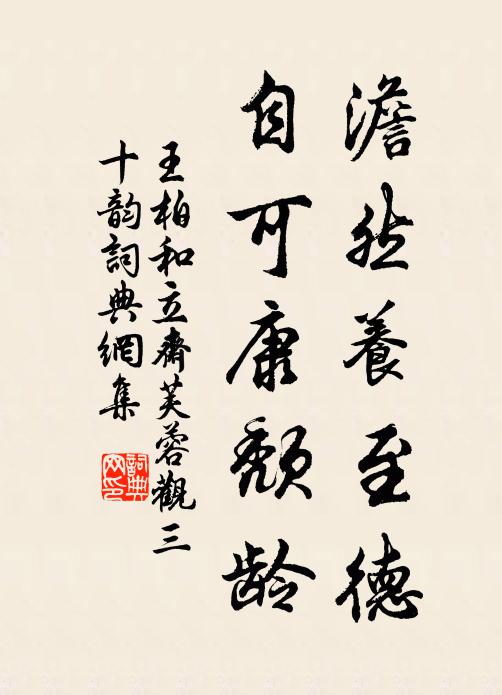 澹然養至德
自可康頽龄
王柏和立齋芙蓉觀三
十韵詞典網集
詞典
网印